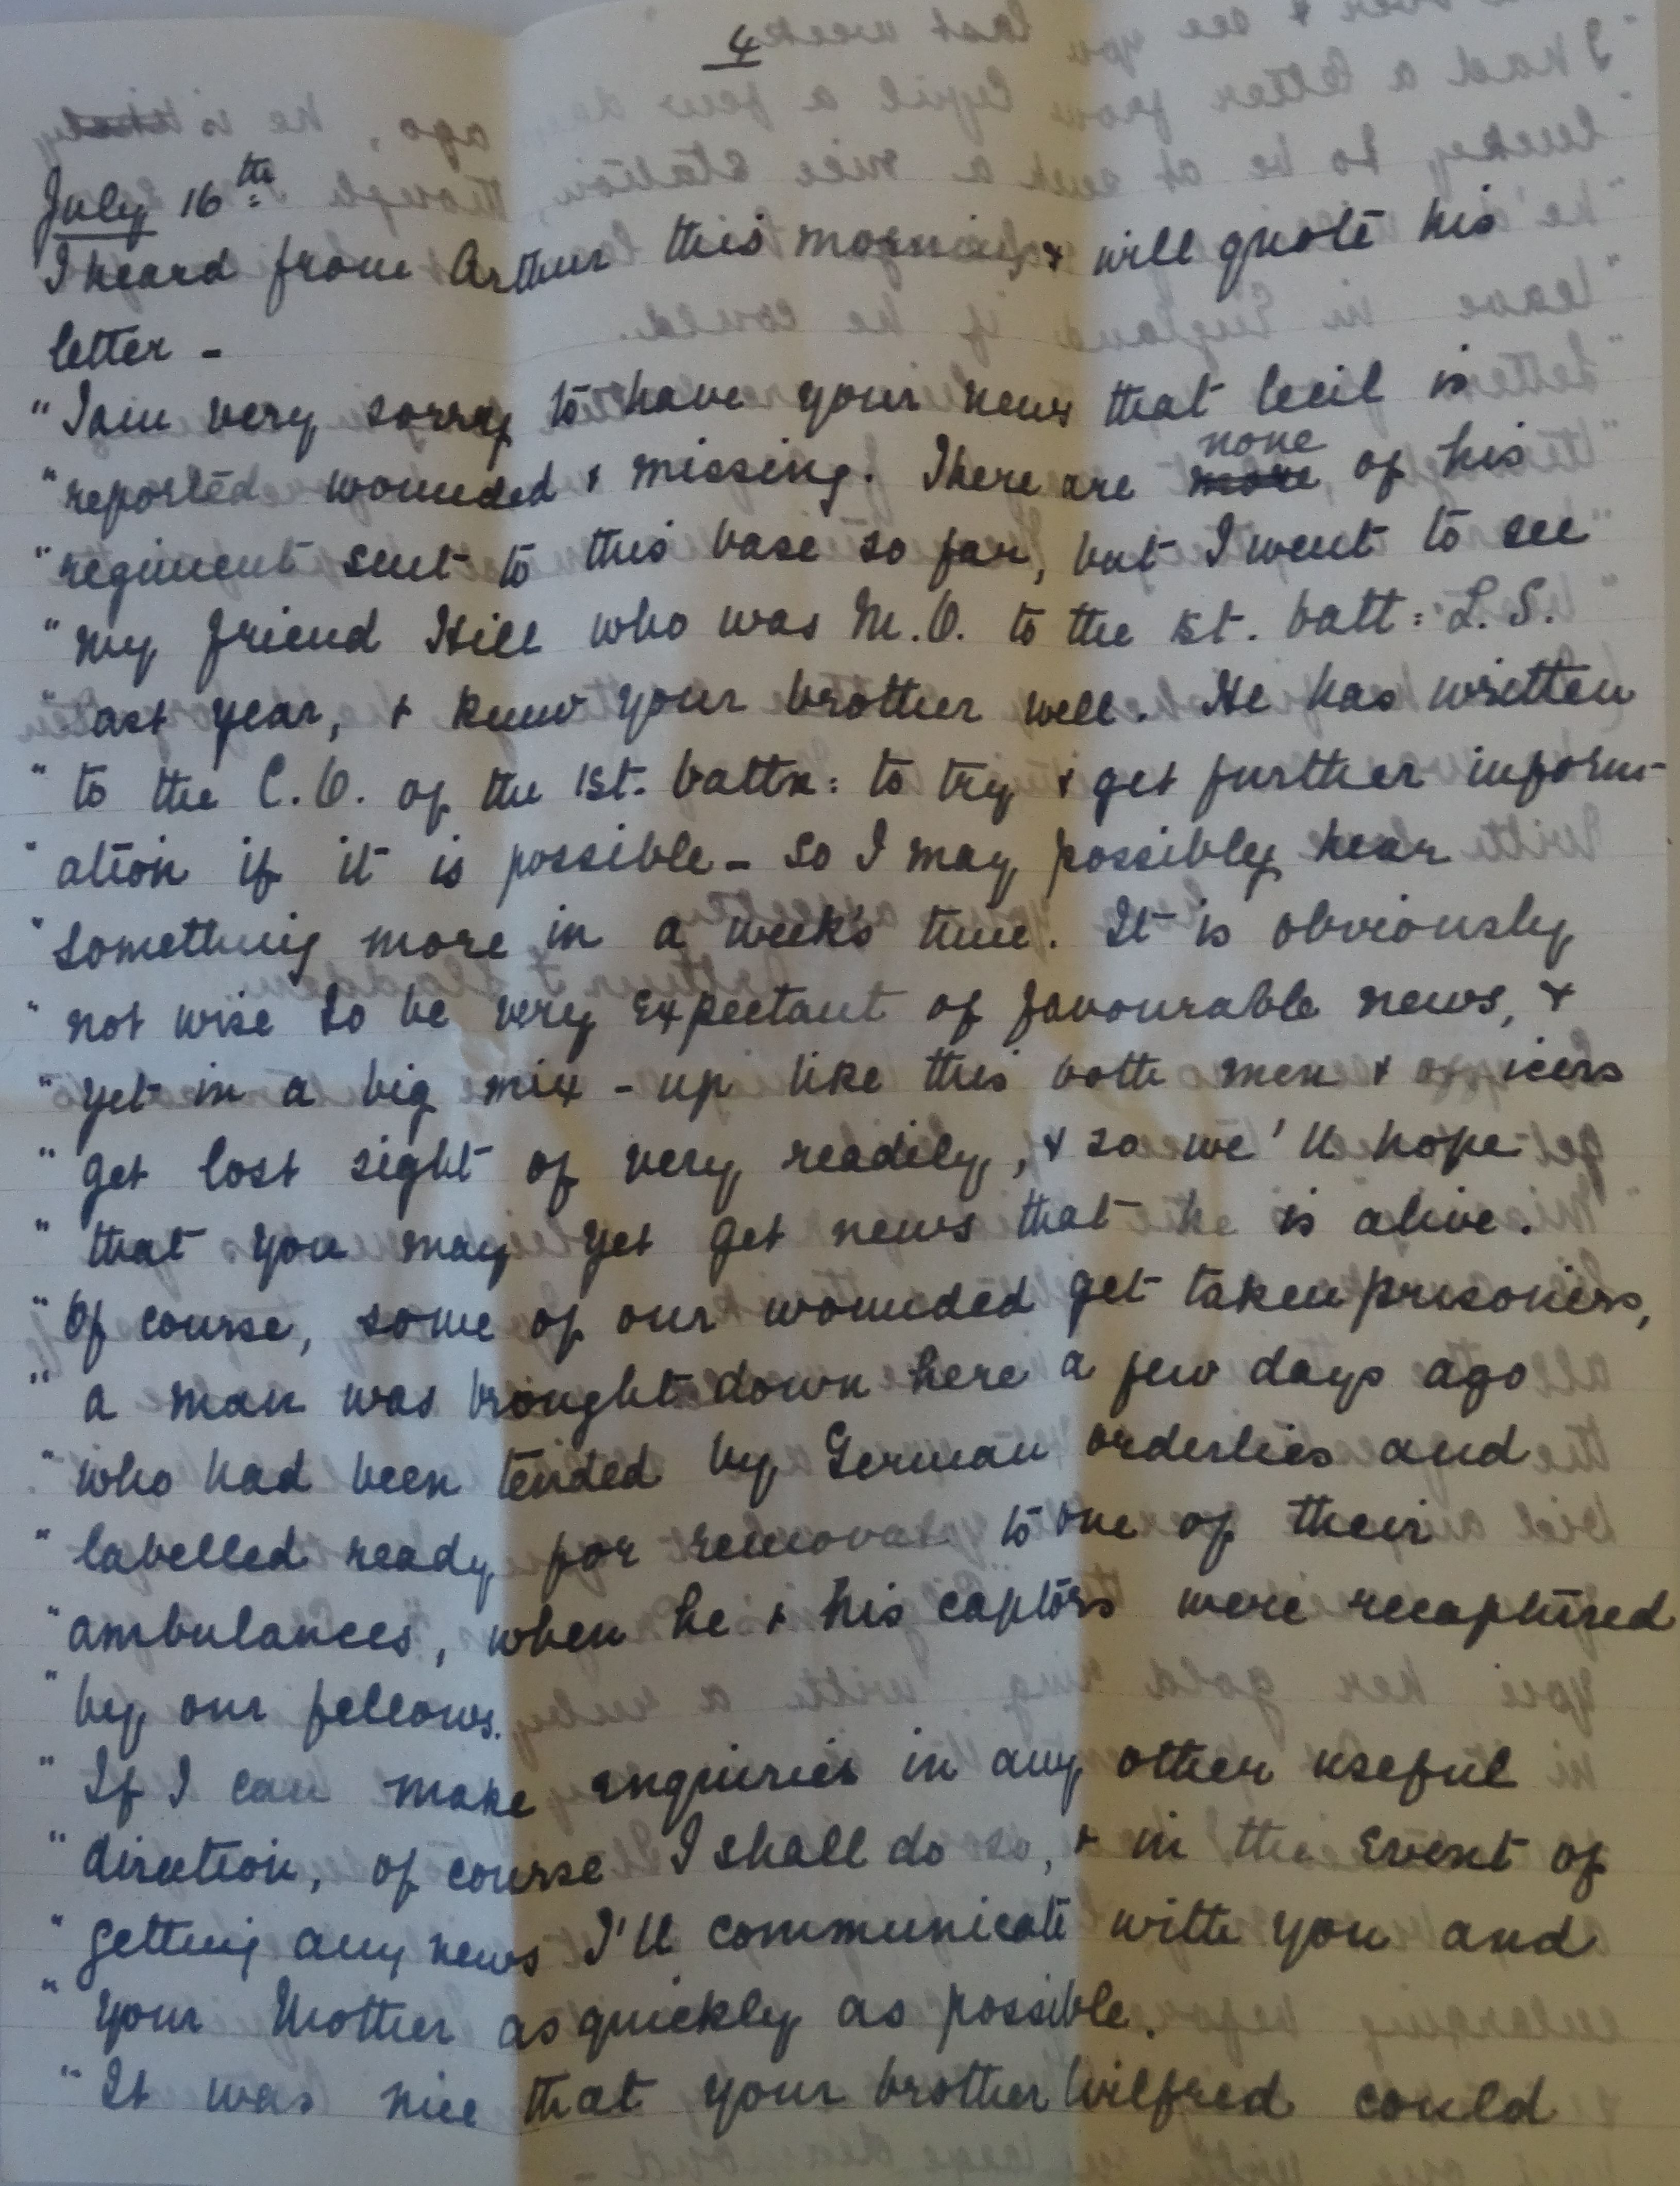 4
July 16th
I heard from Arthur this morning & will quote his
letter -
"I am very sorry to have your news that Cecil is
none
"reported wounded & missing. There are more of his
"regiment sent to this base so far, but I went to see
"my friend Hill who was M.O. to the 1st. batt: L.S.
"ast year, & knew your brother well. He has written
"to the C.O. of the 1st. battn: to try & get further inform-
"ation if it is possible - so I may possibly hear
"something more in a week's time. It is obviously
"not wise to be very expectant of favourable news, &
"yet in a big mix-up like this both men & officers
"get lost sight of very readily, & so we'll hope
"that you may yet get news that he is alive.
"Of course, some of our wounded get taken prisoners,
"a man was brought down here a few days ago
"who had been tended by German orderlies and
"labelled ready for removal to one of their
"ambulances, when he & his captors were recaptured
"by our fellows.
"If I can make enquiries in any other useful
"direction, of course I shall do so, & in the event of
"getting any news I'll communicate with you and
"your Mother as quickly as possible.
"It was nice that your brother Wilfred could